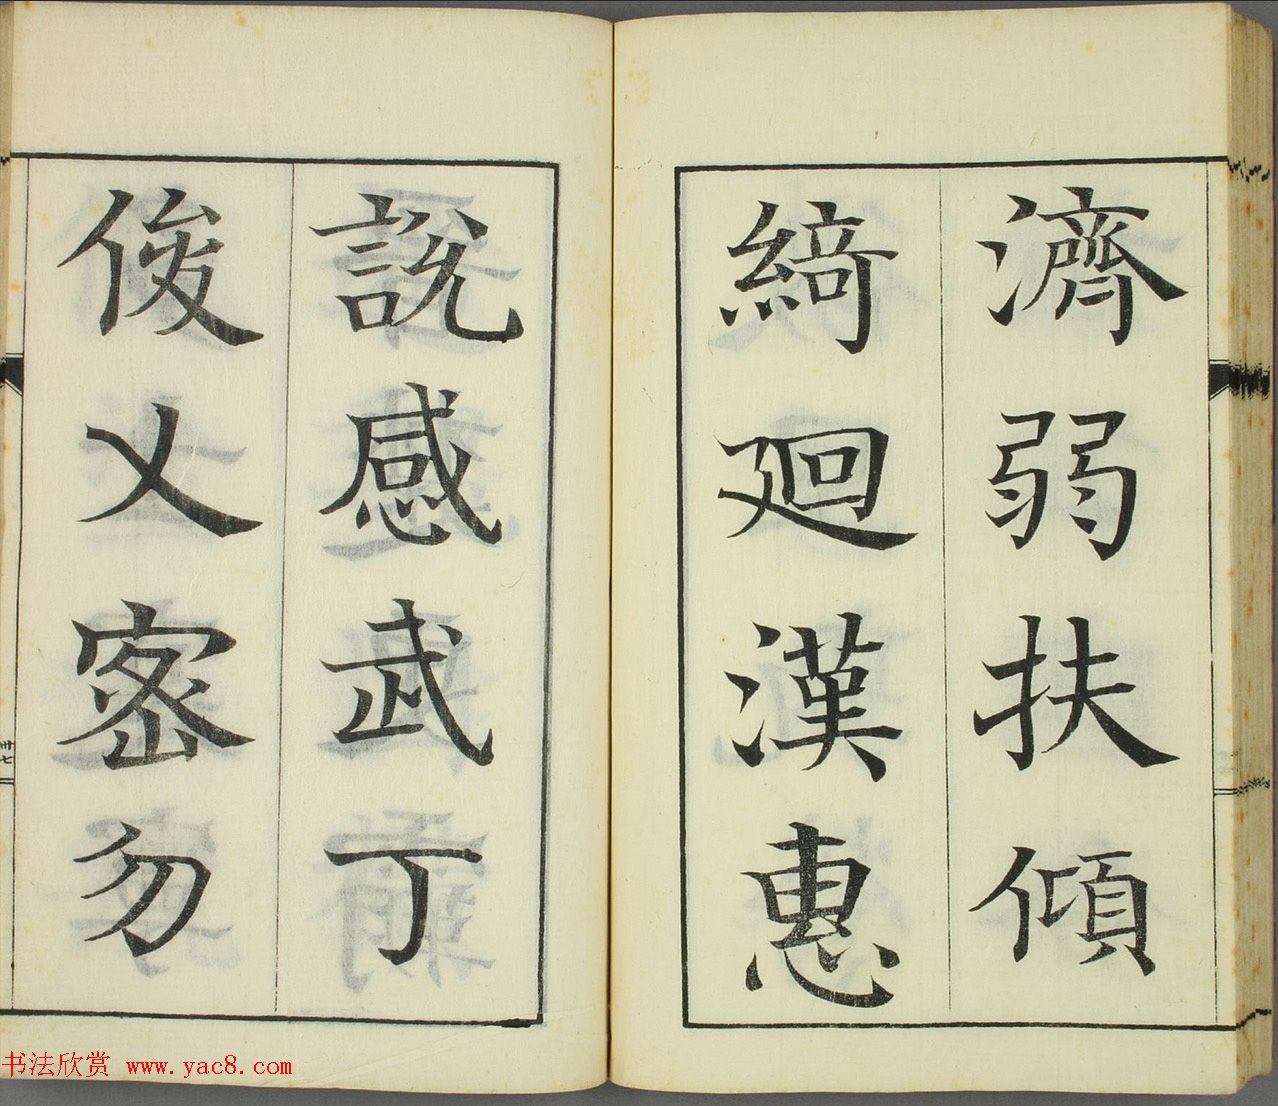 濟弱扶傾
綺迴漢惠
說感武丁
俊乂密勿
卅七
书法欣赏 www.yac8.com